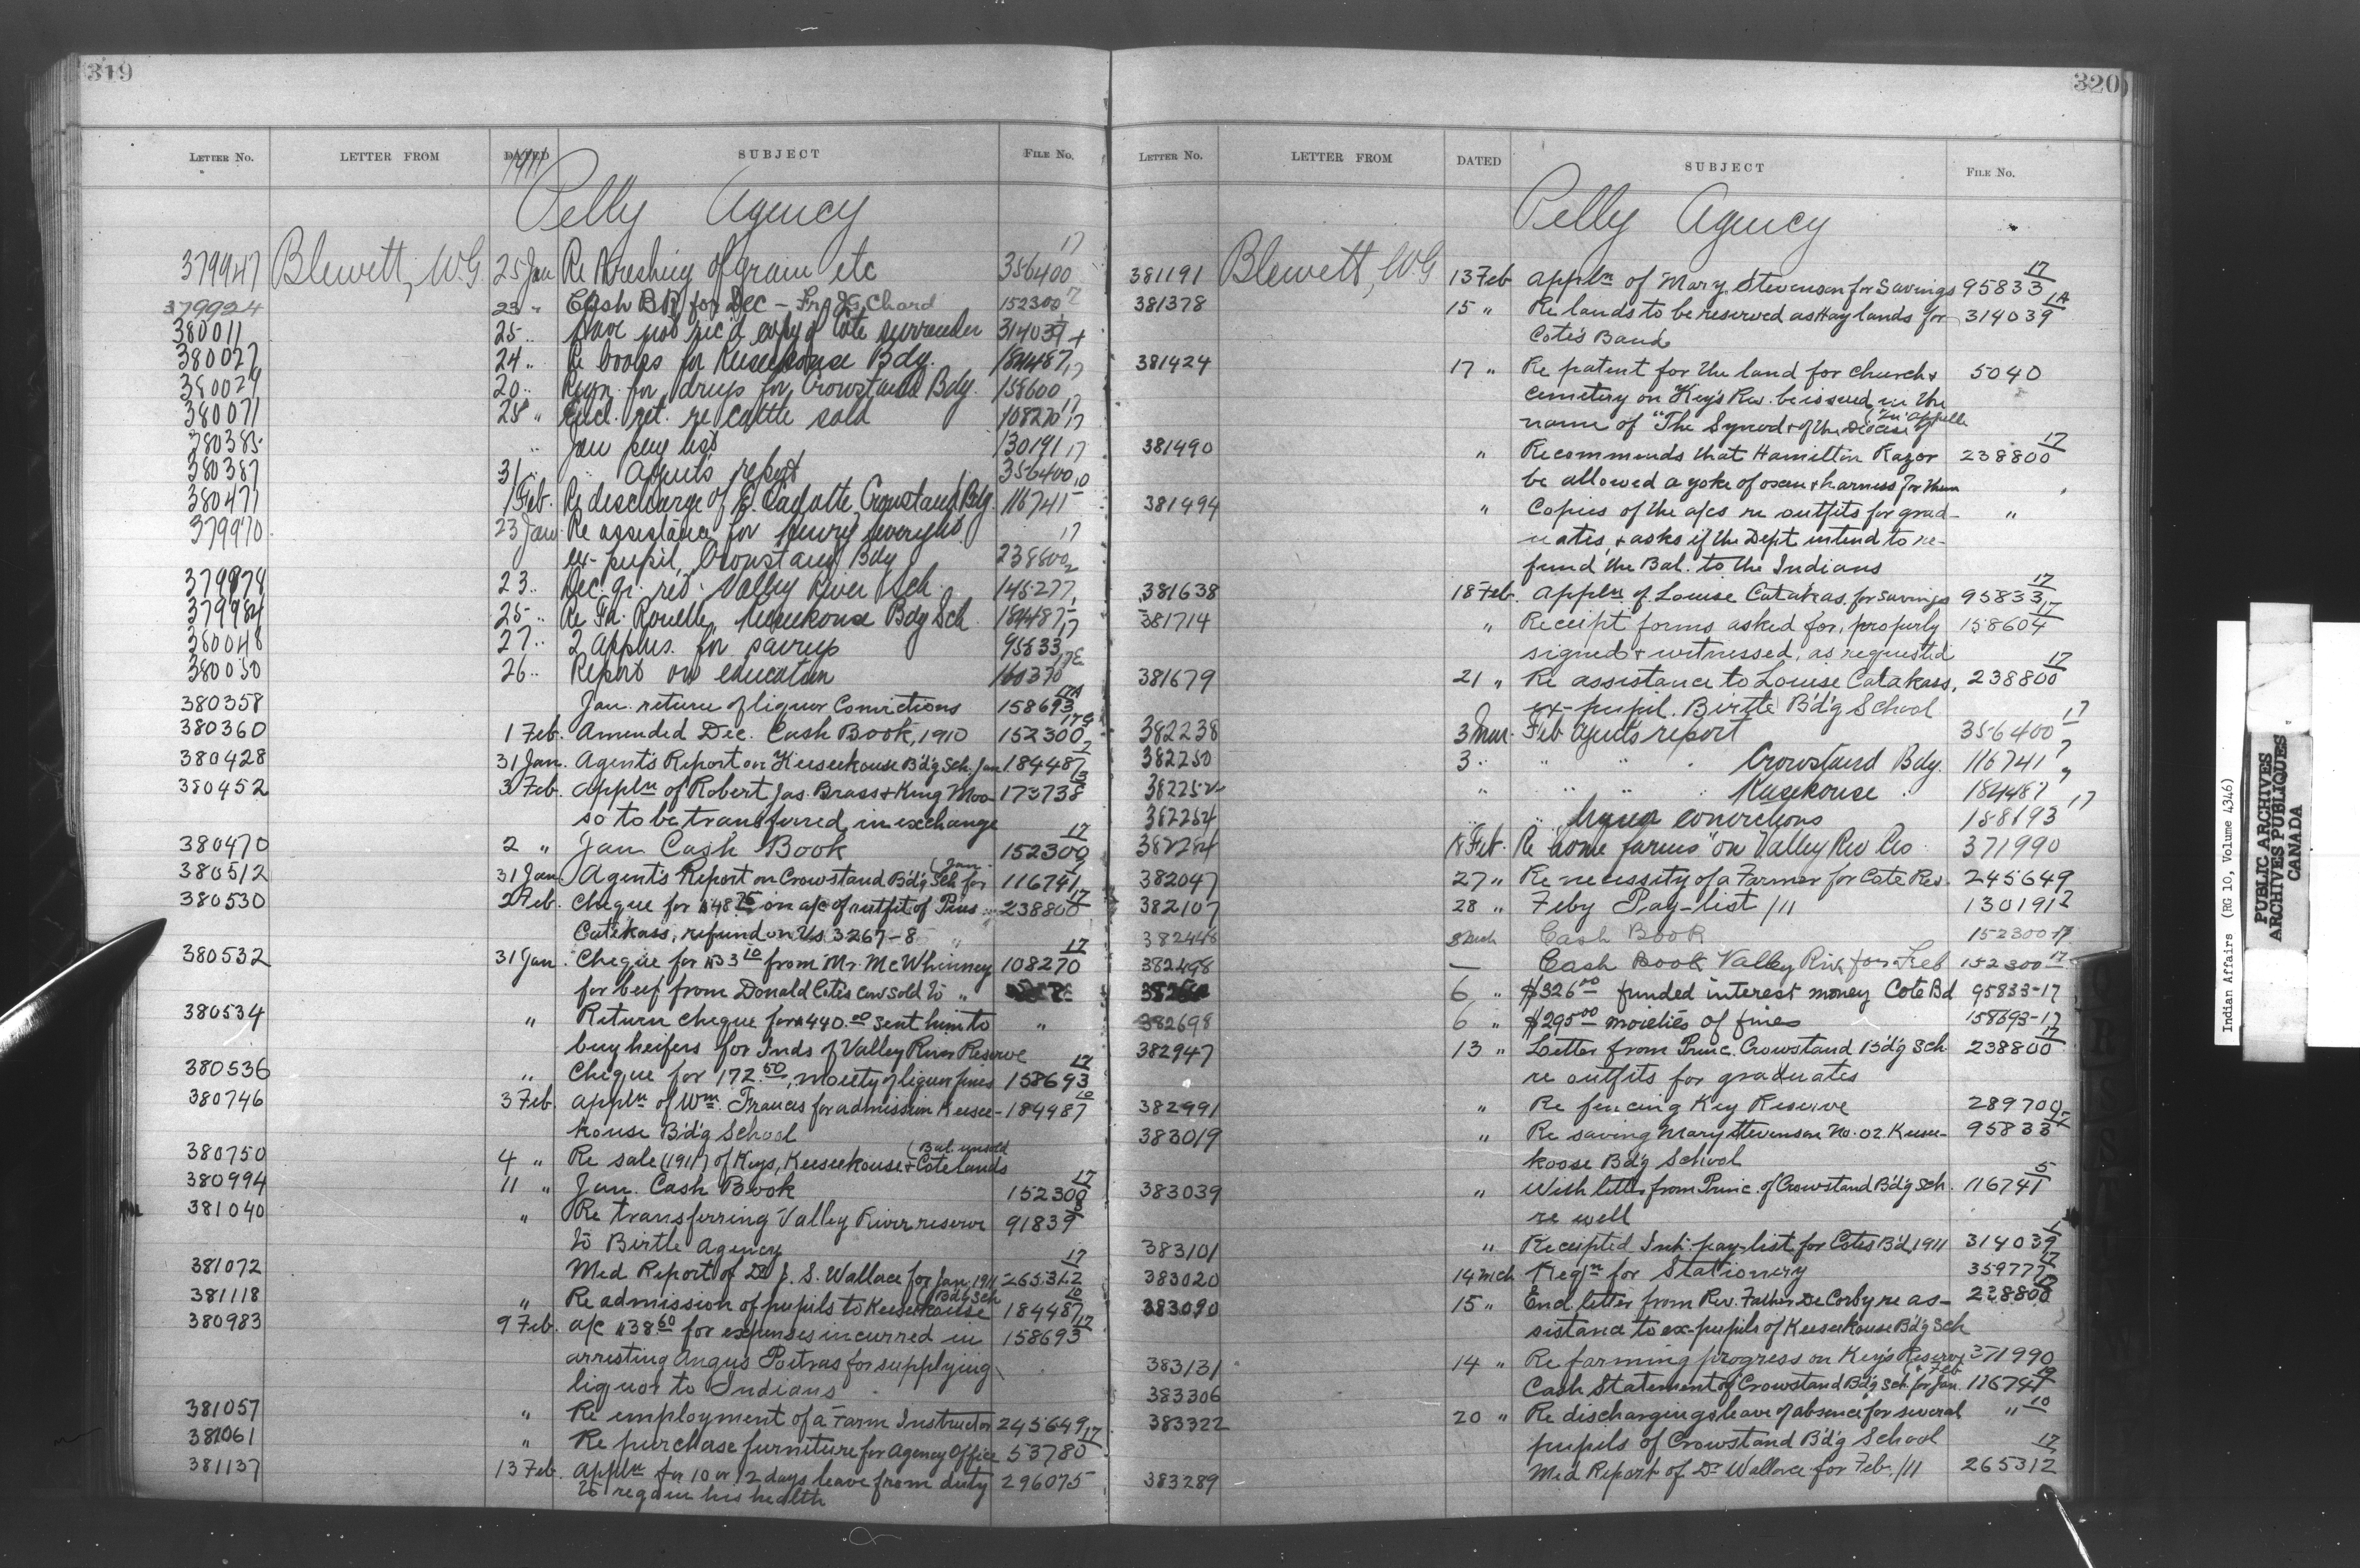 319
LETTER No. LETTER FROM DATED SUBJECT FILE No.
1911
Pelly Agency
379947 Blewett, W.G. 25 Jan Re threshing of grain etc 356400 17
379924 23 " Cash Bk for Dec — Fr. J.G. Chard 152300
380011 25 " Have not rec'd copy of Cote surrender 314039
380027 24 " Re books for Keeseekouse Bdg. 184487 17
380029 20 " Reqn. for drugs for Crowstand Bdg. 158600
380071 28 " Encl. ret. re cattle sold 108270 17
380385 " Jan pay list 130191 17
380387 31 " " Agent's report 356400
380477 1 Feb. Re discharge of E. Cadotte, Crowstand Bdg. 116741
379970 23 Jan Re assistance for Henry 17
ex-pupil, Crowstand Bdg 238800
379978 23 " Dec. qr. ret. Valley River Sch. 145277
379984 25 " Re Fr. Keeseekouse Bdg Sch. 184487 17
380048 27 " 2 applns. for savings 95833
380050 26 " Report on education 160370
380358 Jan. return of liquor Convictions 158693
380360 1 Feb. Amended Dec. Cash Book, 1910 152300
380428 31 Jan. Agent's Report on Keeseekouse B'd'g Sch. Jan 184487
380452 3 Feb. appln of Robert Jas. Brass & King Moo- 173738
so to be transferred in exchange
380470 2 " Jan Cash Book 152300 17
380512 31 Jan. Agent's Report on Crowstand Bd'g Sch for (Jan. 116741
380530 2 Feb. Cheque for $48.75 on a/c of outfit of Pius 238800 17
Catekass, refund on Us 3267-8
380532 31 Jan. Cheque for $33.10 from Mr. McWhinney 108270 17
for beef from Donald Cotes cow sold to "
380534 " Return cheque for $440.00 sent him to "
buy heifers for Inds of Valley River Reserve
380536 " Cheque for 172.50, moiety of liquor fines 158693 17
380746 3 Feb. appln of Wm. Francis for admission Keesee- 184487 10
kouse B'd'g School
380750 4 " Re sale (1911) of Keys, Keeseekouse & Cote lands (Bal. unsold
380994 11 " Jan. Cash Book 152300 17
381040 " Re transferring Valley River reserve 91839
to Birtle Agency
381072 Med Report of Dr J. S. Wallace for Jan, 1911 265312 17
381118 " Re admission of pupils to Keeseekouse (Bd'g Sch 184487 10
380983 9 Feb. a/c $38.60 for expenses incurred in 158693 17
arresting Angus Poitras for supplying
liquor to Indians
381057 " Re employment of a Farm Instructor 245649
381061 " Re purchase furniture for Agency Office 53780 17
381137 13 Feb. appln for 10 or 12 days leave from duty 296075
to regain his health
320
LETTER No. LETTER FROM DATED SUBJECT FILE No.
Pelly Agency
381191 Blewett, W.G 13 Feb appln of Mary Stevenson for Savings 95833 17
381378 15 " Re lands to be reserved as Hay lands for 314039 1A
Cote's Band
381424 17 " Re patent for the land for church & 5040
cemetery on Key's Res. be issued in the
name of "The Synod & of the Diocese of (Qu'Appelle
381490 " Recommends that Hamilton Razor 238800 17
be allowed a yoke of oxen & harness for them
381494 " Copies of the a/cs re outfits for grad- "
uates, & asks if the Dept intend to re-
fund the Bal. to the Indians
381638 18 Feb. appln of Louise Catakas for Savings 95833 17
381714 " Receipt forms asked for, properly 158604 17
signed & witnessed, as requested
381679 21 " Re assistance to Louise Catakass, 238800 17
ex-pupil. Birtle B'd'g School
382238 3 Mar. Feb Agent's report 356400 17
382250 3 " " " " Crowstand Bdg. 116741
382252 " " " " Kesekouse " 184487
382254 " " liquor convictions 158693 17
382284 18 Feb. Re "home farms" on Valley Riv Res. 371990
382047 27 " Re necessity of a Farmer for Cote Res. 245649
382107 28 " Feby Pay-list /11 130191
382448 8 Mch Cash Book 152300-17
382498 — Cash Book Valley Riv for Feb 152300-17
6 " $326.00 funded interest money Cote Bd 95833-17
382698 6 " $295.00 moieties of fines 158693-17
382947 13 " Letter from Princ. Crowstand B'd'g Sch 238800 17
re outfits for graduates
382991 " Re fencing Key Reserve 289700
383019 " Re saving Mary Stevenson No. 02 Keesee- 95833
koose Bd'g School
383039 " With letter from Princ. of Crowstand Bd'g Sch. 116741 5
re well
383101 " Receipted Int. pay-list for Cotes B'd, 1911 314039 1
383020 14 Mch Reqn for Stationery 359777
383090 15 " Encl letter from Rev. Father DeCorby re as- 238800
sistance to ex-pupils of Keeseekouse Bd'g Sch
383131 14 " Re farming progress on Key's Reserve 371990
383306 Cash Statement of Crowstand Bd'g Sch. for Jan. & Feb 116741
383322 20 " Re discharging & leave of absence for several " 10
pupils of Crowstand Bd'g School
383289 Med Report of Dr Wallace for Feb. /11 265312 17
Indian Affairs (RG 10, Volume 4346)
PUBLIC ARCHIVES
ARCHIVES PUBLIQUES
CANADA